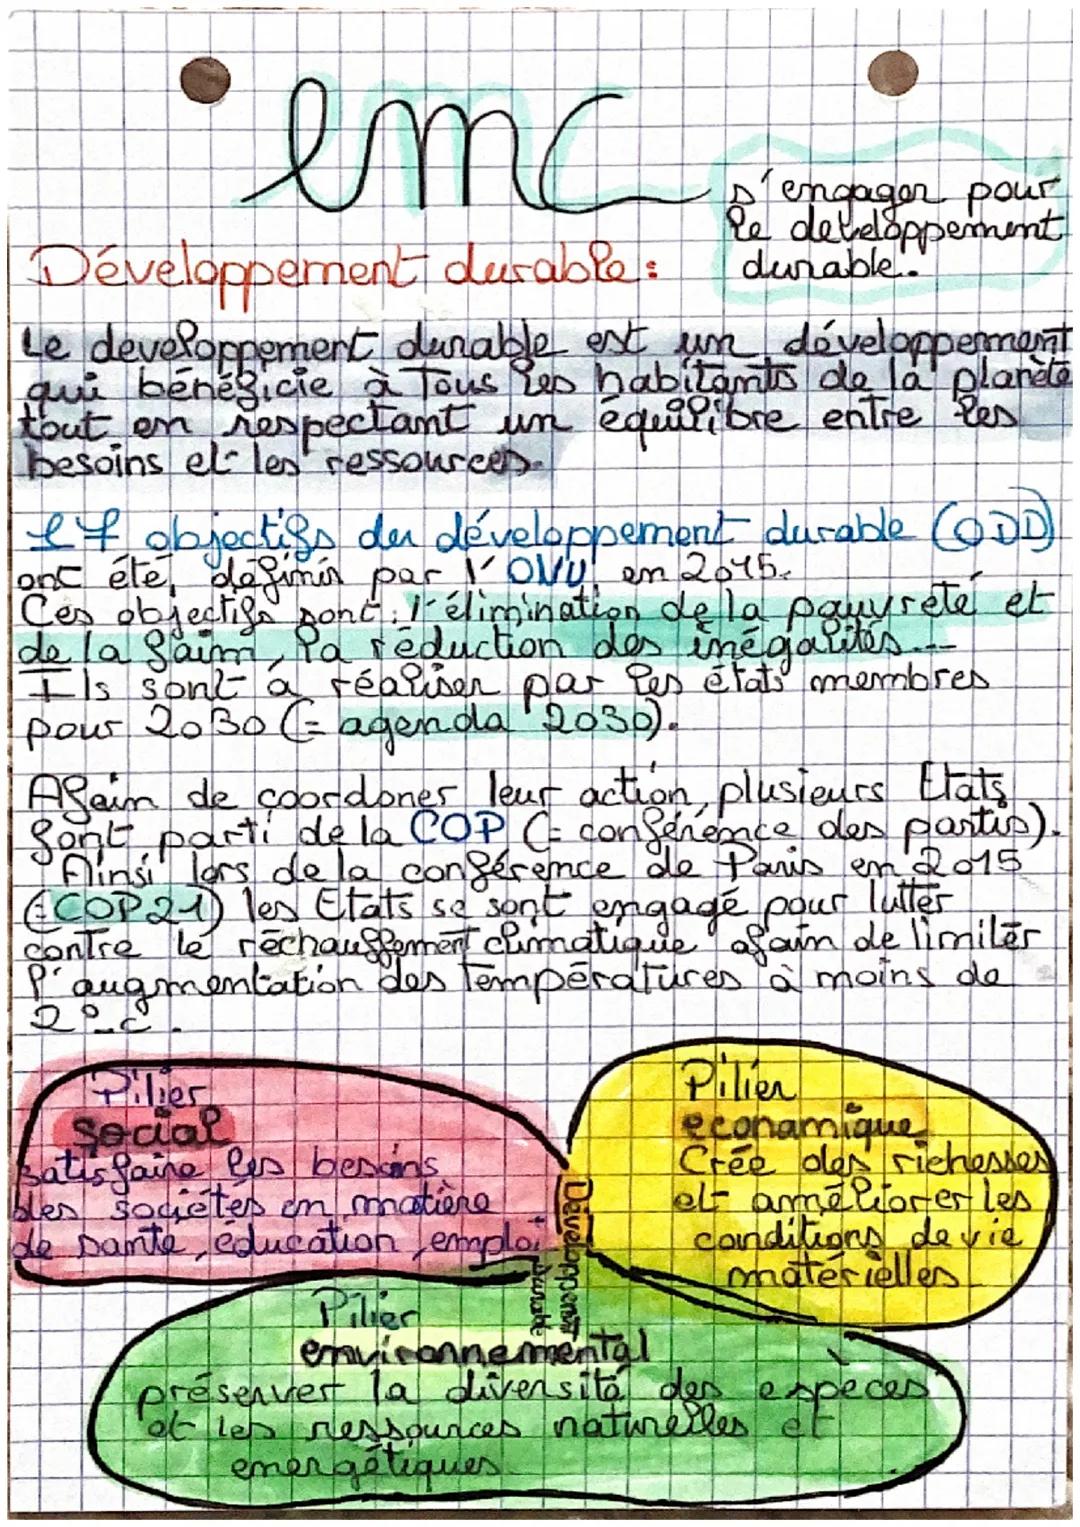 emc
s'engager pour
le developpement
durable.
Développement durable :
Le developpement durable est un développement
qui bénéficie à tous les habitants de la planète
tout en respectant un équilibre entre les
besoins et les ressources.
17 objectifs du développement durable (ODD)
ont été définir par l'ONU en 2015.
Ces objectifs sont : l'élimination de la pauvreté et
de la faim, la réduction des inégalités...
Ils sont à réaliser par les états membres
pour 2030 (= agenda 2030).
Afain de coordoner leur action, plusieurs Etats
font parti de la COP (= conférence des partis).
Ainsi lors de la conférence de Paris en 2015
(=COP21) les Etats se sont engagé pour lutter
contre le réchauffement climatique afain de limiter
l'augmentation des températures à moins de
2°c.
Pilier
social
satisfaire les besoins
des sociétés en matière
de santé, éducation, emploi
Pilier
economique
Crée des richesses
et améliorer les
conditions de vie
matérielles
Développement
durable
Pilier
environnemental
préserver la diversité des espèces
et les ressources naturelles et
energétiques